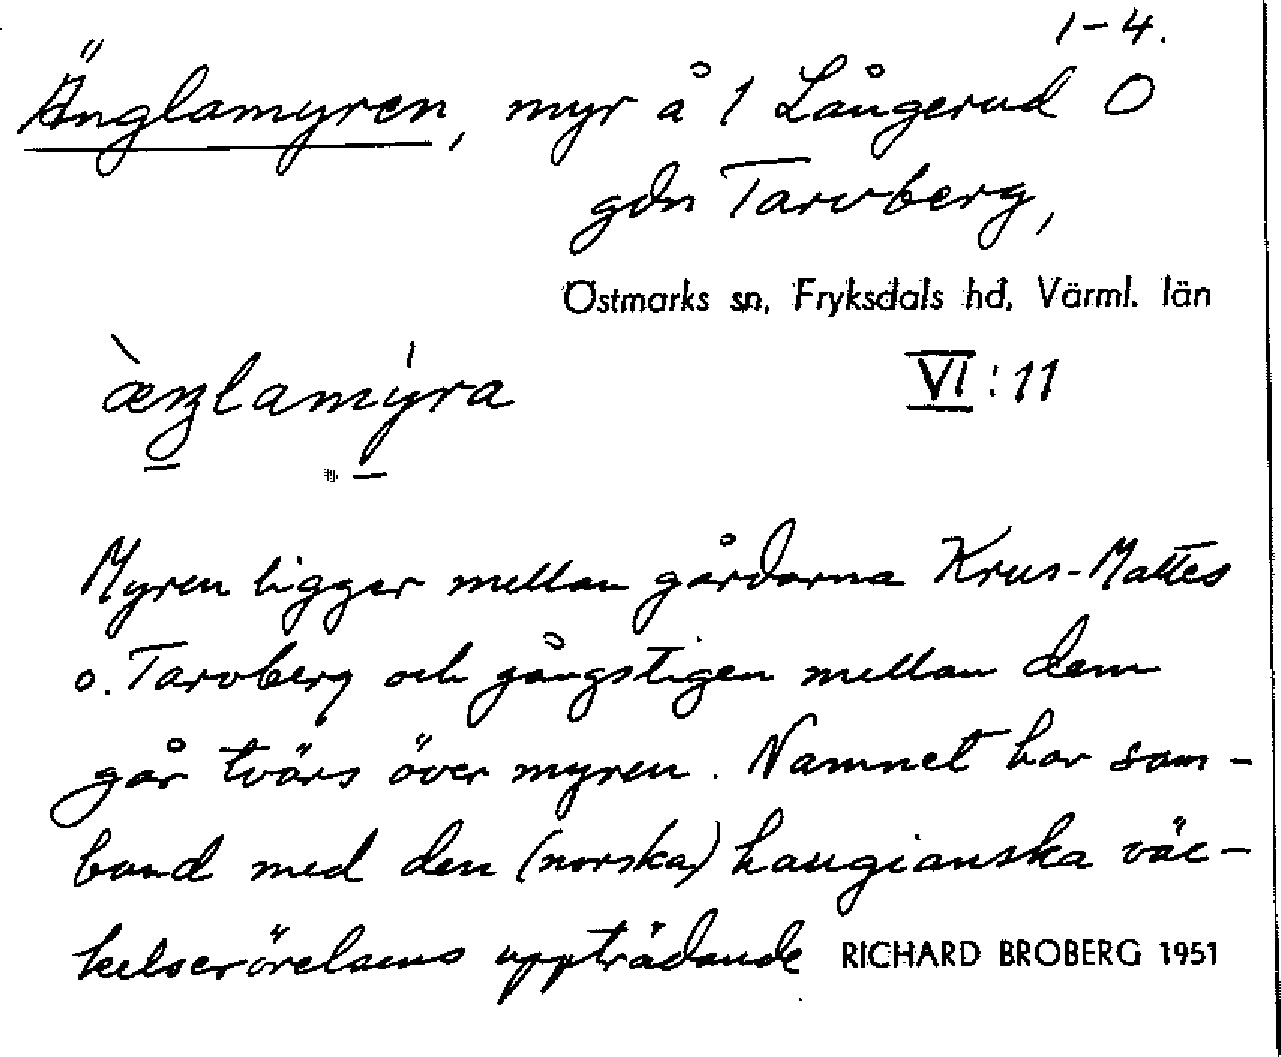 1-4.
Änglamyren, myr å 1 Långerud O
gdn Tarvberg,
Östmarks sn, Fryksdals hd, Värml. län
æ̀ŋlamýra
VI:11
Myren ligger mellan gårdarna Krus-Mattes
o. Tarvberg och gångstigen mellan dem
går tvärs över myren. Namnet har sam-
band med den (norska) haugianska väc-
kelserörelsens uppträdande
RICHARD BROBERG 1951